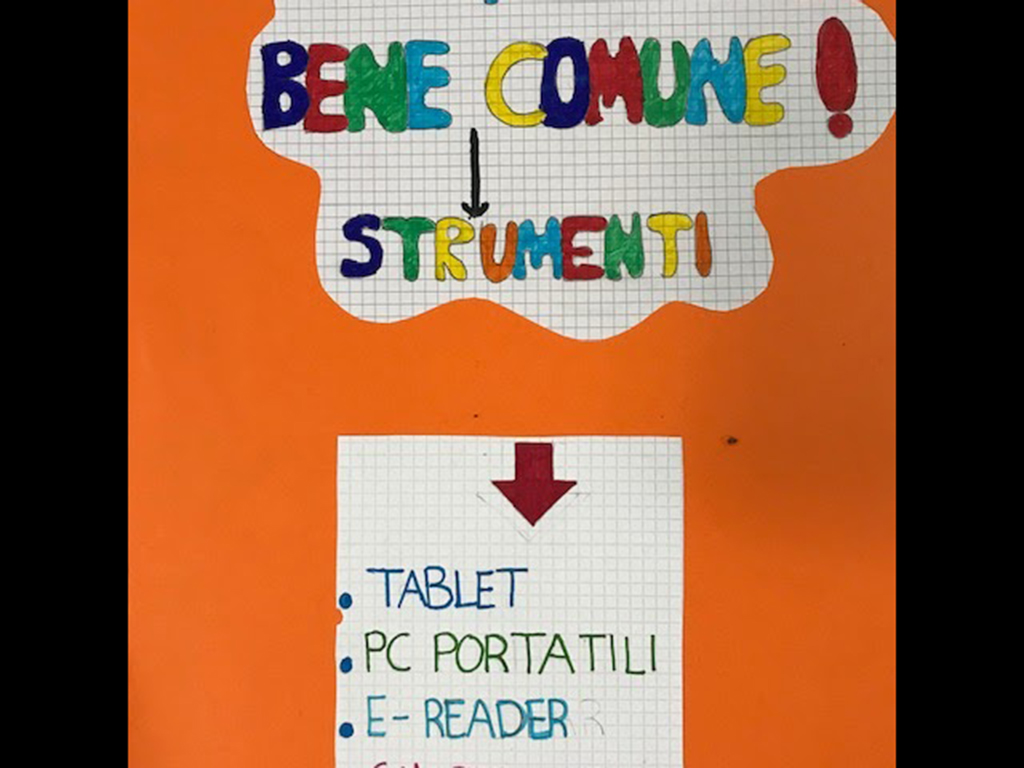 BENE COMUNE!
STRUMENTI
• TABLET
• PC PORTATILI
• E-READER